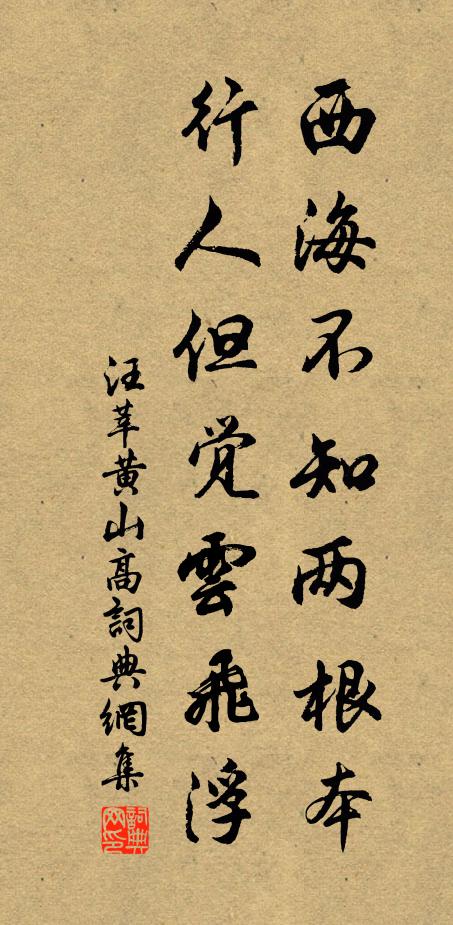 西海不知两根本
行人但覚雲飛浮
汪莘黄山高詞典網集
詞典网印